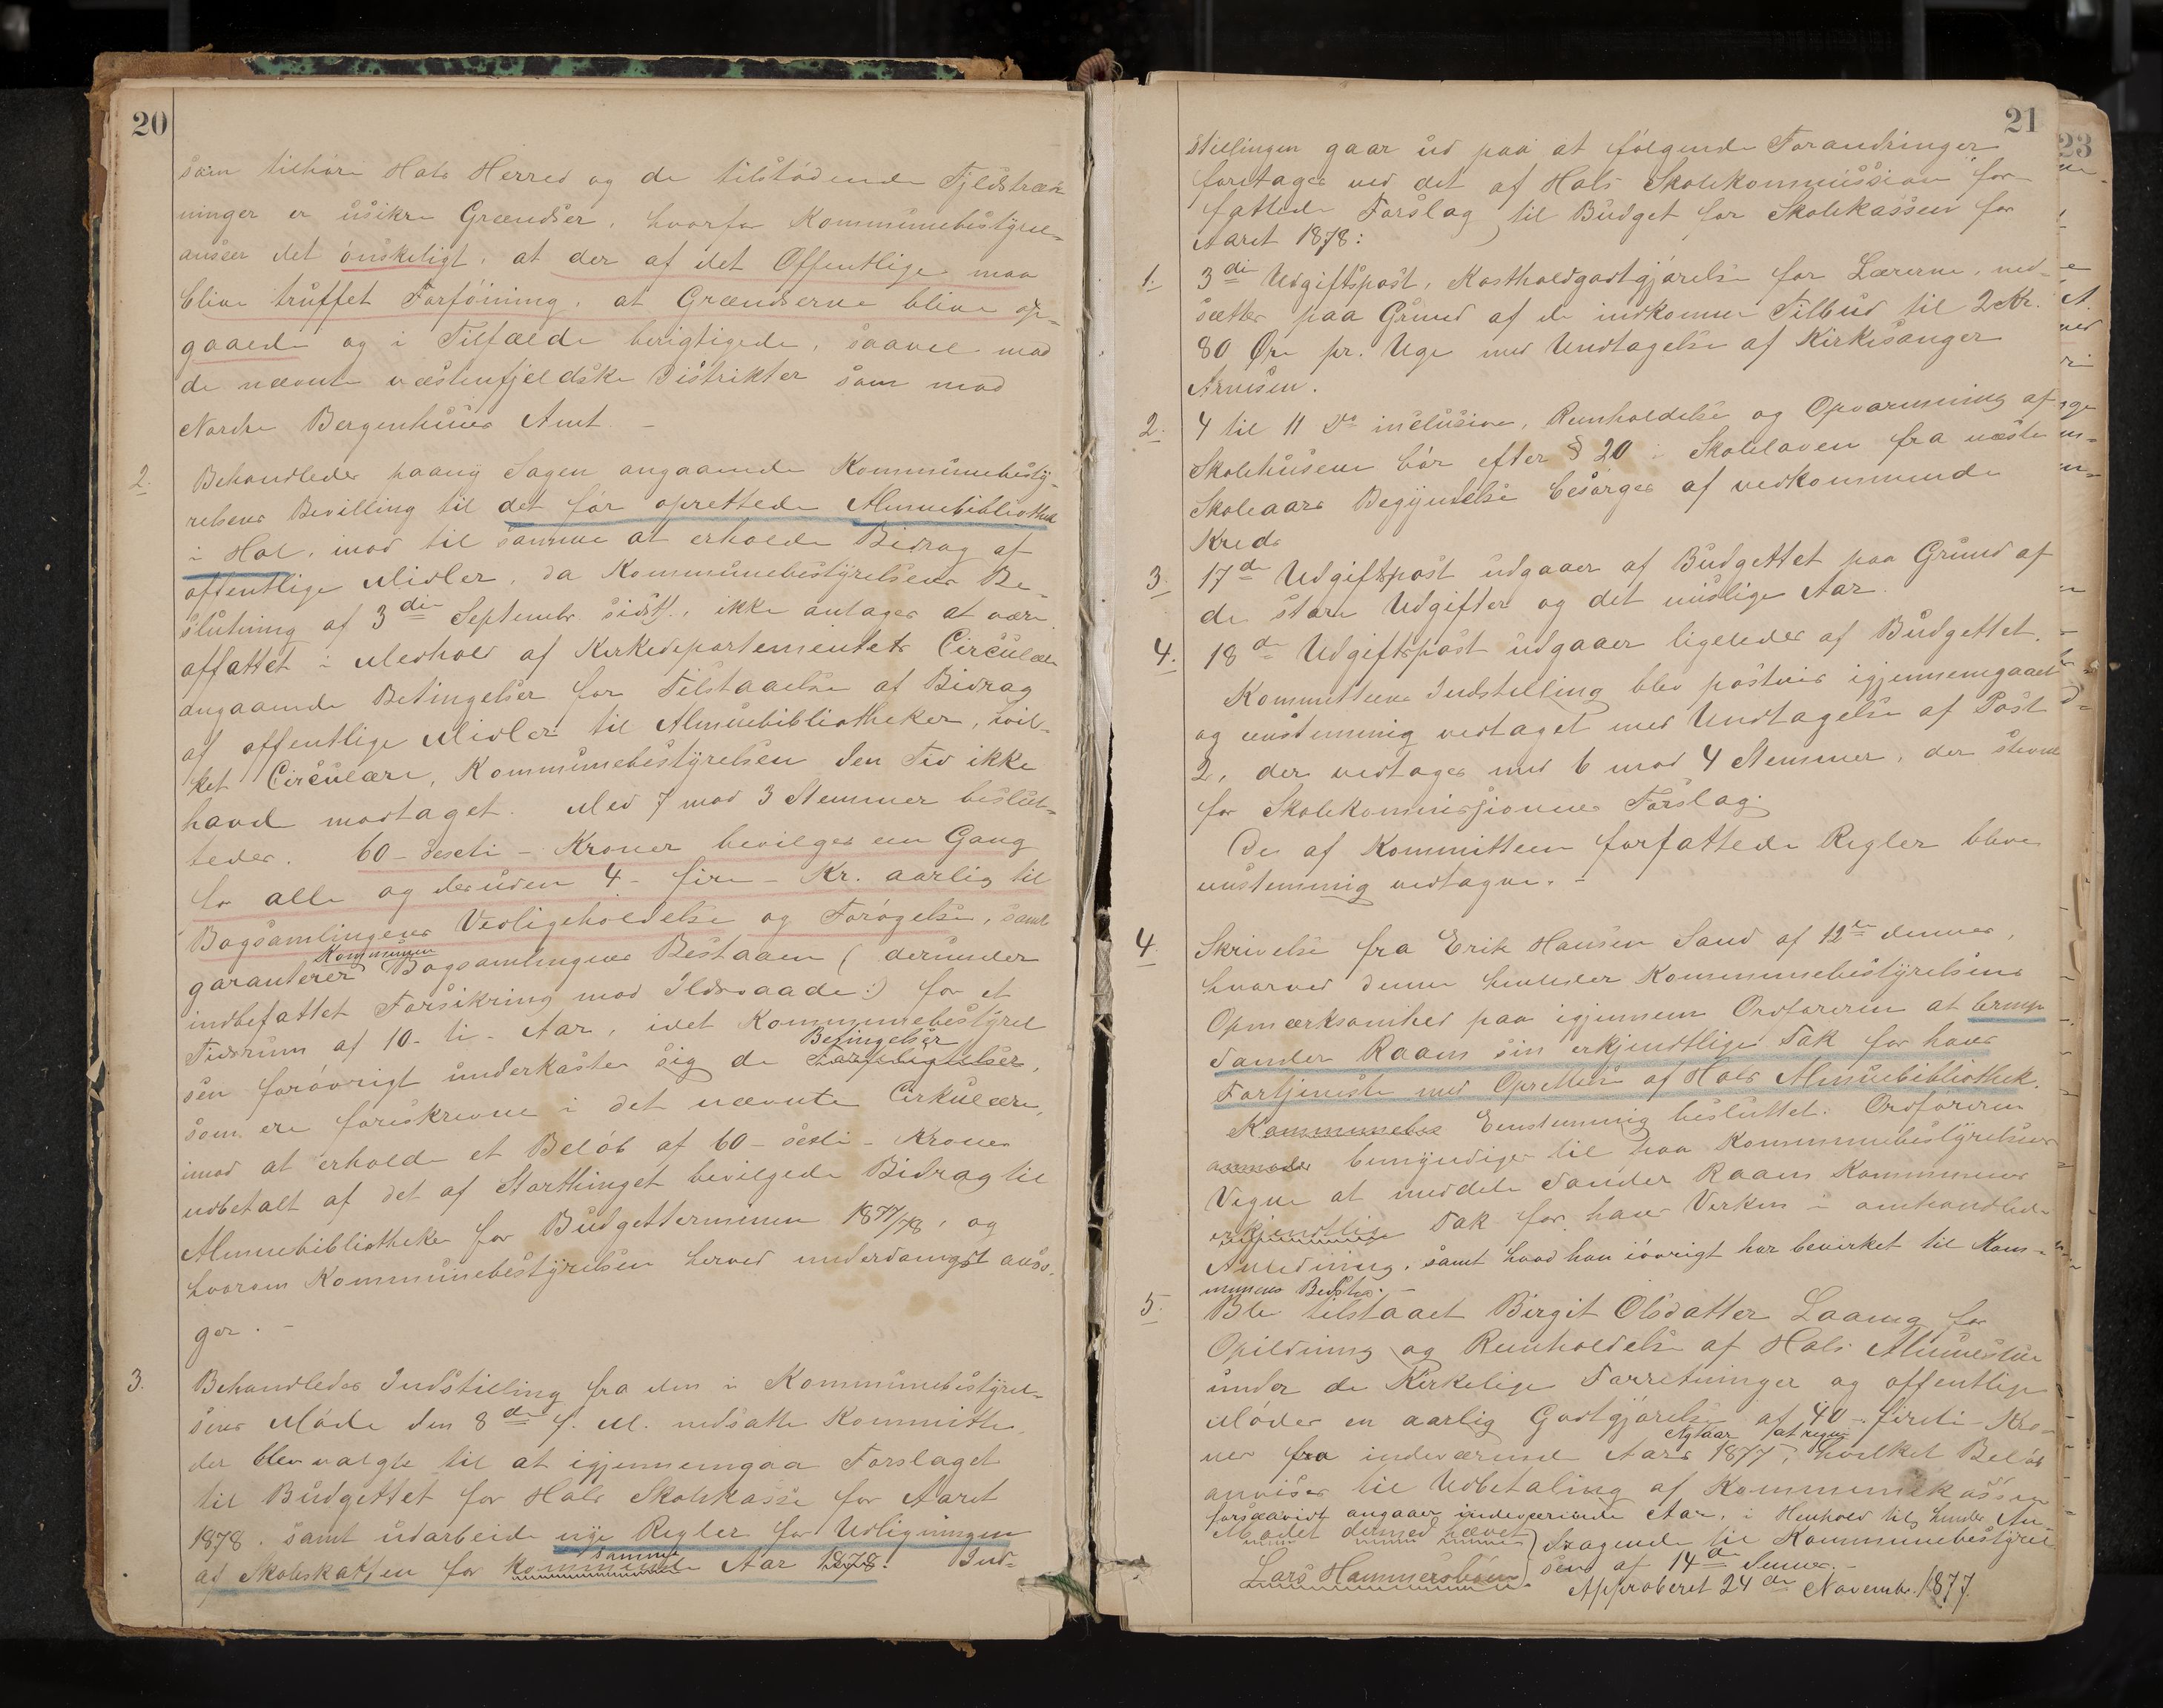 20
som tilhøre Hols Herred og de tilstødende Fjeldstræk-
ninger er usikre Grændser, hvorfor Kommunebestyrel-
anseer det ønskeligt, at der af det Offentlige maa
blive truffet Forføining, at Grændserne blive op-
gaaede og i Tilfælde berigtigede, saavel mod
de nævnte væstenfjeldske Distrikter som mod
Nordre Bergenhuus Amt. -
2. Behandledes paany Sagen angaaende Kommunebesty-
relsens Bevilling til det før oprettede Almuebibliothek
i Hol, mod til samme at erholde Bidrag af
offentlige Midler, da Kommunebestyrelsens Be-
slutning af 3die Septembr. sidstl. ikke antages at være
affattet i Medhold af Kirkedepartementets Circulære
angaaende Betingelser for Tilstaaelse af Bidrag
af offentlige Midler til Almuebibliotheker, hvil-
ket Circulære, Kommunebestyrelsen den Tid ikke
havde modtaget. Med 7 mod 3 Stemmer beslut-
tedes. 60 - sexti - Kroner bevilges een Gang
for alle og desuden 4 - fire - Kr. aarlig til
Bogsamlingens Vedligeholdelse og Forøgelse, samt
Kommunen
garanterer Bogsamlingens Bestaaen (derunder
indbefattet Forsikring mod Ildsvaade:) for et
Tidsrum af 10 - ti - Aar, idet Kommunebestyrel
Betingelser
sen forøvrigt underkaster sig de Forpligtelser,
som ere foreskrevne i det nævnte Cirkulære,
imod at erholde et Beløb af 60 - sexti - Kroner
udbetalt af det af Storthinget bevilgede Bidrag til
Almuebibliotheker for Budgetterminen 1877/78, og
hvorom Kommunebestyrelsen herved underdanigst ansø-
ger. -
3. Behandledes Indstilling fra den i Kommunebestyrel-
sens Møde den 8de f. M. nedsatte Kommitte,
der blev valgte til at igjennemgaa Forslaget
til Budgettet for Hols Skolekasse for Aaret
1878. samt udarbeide nye Regler for Udligningen
samme
af Skoleskatten for kommende Aar 1878. Ind-
21
23
stillingen gaar ud paa at følgende Forandringer
foretages ved det af Hols Skolekommission for-
fattede Forslag til Budget for Skolekassen for
Aaret 1878:
1. 3die Udgiftspost, Kostholdgodtgjørelse for Lærerne, ned-
sættes paa Grund af de indkomne Tilbud til 2 Kr.
80 Øre pr. Uge med Undtagelse af Kirkesanger
Arnesen.
2. 4 til 11 do inclusive, Reenholdelse og Opvarmning af
Skolehusene bør efter § 20 i Skoleloven fra næste
Skoleaars Begyndelse besørges af vedkommende
Kreds
3. 17de Udgiftspost udgaaer af Budgettet paa Grund af
de store Udgifter og det uuslige Aar.
4. 18de Udgiftspost udgaaer ligeledes af Budgettet.
Kommitteens Indstilling blev postvis igjennemgaaet
og eenstemmig vedtaget med Undtagelse af Post
2, der vedtages med 6 mod 4 Stemmer, der stemte
for Skolekommissionens Forslag.
De af Kommitteen forfattede Regler bleve
eenstemmig vedtagne. -
4. Skrivelse fra Erik Hansen Sand af 12te dennes,
hvorved denne henleder Kommunebestyrelsens
Opmærksomhed paa igjennem Ordføreren at bringe
Sander Raaen sin erkjendtlige Tak for hans
Fortjeneste med Oprettelse af Hols Almuebibliothek.
Kommunebes Eenstemmig besluttet: Ordføreren
anmodes bemyndiges til paa Kommunebestyrelsens
Vegne at meddele Sander Raaen Kommunens
erkjendtlige Tak for hans Virken i omhandlede
Anledning, samt hvad han iøvrigt har bevirket til Kom-
munens Bedste. -
5. Blev tilstaaet Birgit Olsdatter Laang for
Opildning og Reenholdelse af Hols Almuestue
under de Kirkelige Forretninger og offentlige
Møder en aarlig Godtgjørelse af 40 - fireti - Kro-
Nytaar at regne
ner fra indeværende Aars 1877, hvilket Beløb
anvises til Udbetaling af Kommunekassen
forsaavidt angaaer indeværende Aar, i Henhold til hendes An-
Mødet dermed hævet
dragende til Kommunebestyrel
sen af 14de dennes. -
Lars Hammersbøen
Approberet 24de Novembr. 1877.